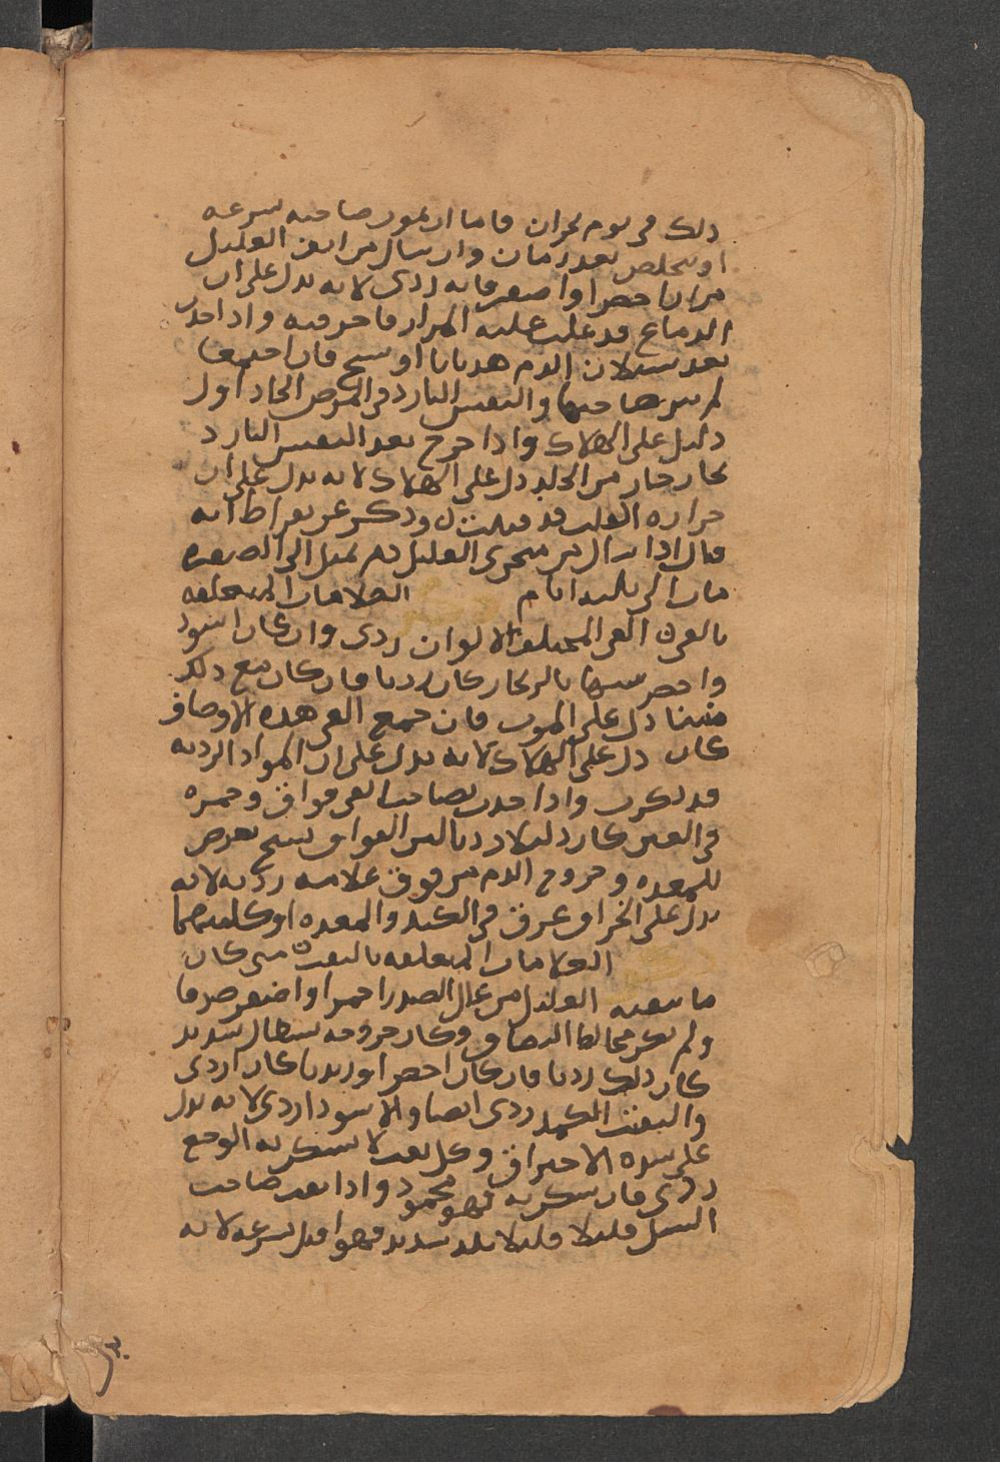 ذلك في يوم بحران فاما ان يموت صاحبه بسرعه
او يتخلص بعد زمان وان سال من انف العليل
مرارا اخضر او اصفر فانه ردى لانه يدل على ان
الدماغ قد غلب عليه المرار فاحرقه واذا احدث
بعد سيلان الدم هذيانا او تشنج فان اجتمعا
لم يبرء صاحبها والنفس البارد في المرض الحاد اول
دليل على الهلاك واذا خرج بعد النفس البارد
بخار حار من الجلد دل على الهلاك لانه يدل على ان
حرارة القلب قد وذكر عن بقراط انه
قال اذا سال من منخري العليل دم يميل الى الصفره
مات الى ثلثه ايام ذكر العلامات المتعلقه
بالقيء القي المختلف الالوان ردى وان كان اسود
واخضر شبيها بالزنجار كان رديا فان كان مع ذلك
منتنا دل على الموت فان جمع القي هذه الاوصاف
كان دل على الهلاك لانه يدل على ان المواد الرديه
قد تكون واذا حدث بصاحب القي فواق وحمره
في العين كان دليلا رديا لان الفواق تشنج يعرض
للمعده وخروج الدم من فوق علامه رديه لانه
يدل على انخراق عرق في الكبد والمعده او كليهما
ذكر العلامات المتعلقه بالنفث متى كان
ما ينفثه العليل من علل الصدر احمرا او اصفر صرفا
ولم يكن مخالطا البصاق وكان خروجه بسعال شديد
كان ذلك رديا فان كان اخضر او زبديا كان اردى
والنفث الكمد ردى ايضا والاسود اردى لانه يدل
على شدة الاحتراق وكل نفث لا يسكن به الوجع
ردى فان سكن به فهو محمود واذا نفث صاحب
السل قليلا قليلا شديد فهو بسرعه لانه